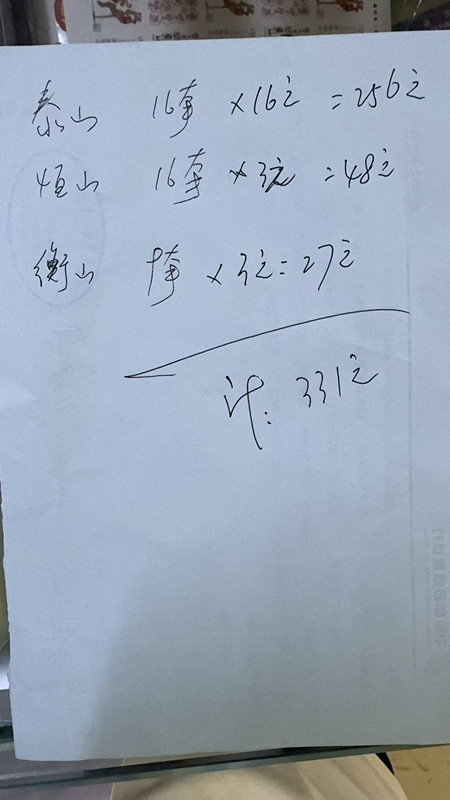 泰山 16套 ×16元 =256元
恒山 16套 ×3元 =48元
衡山 9套 ×3元=27元
计: 331元